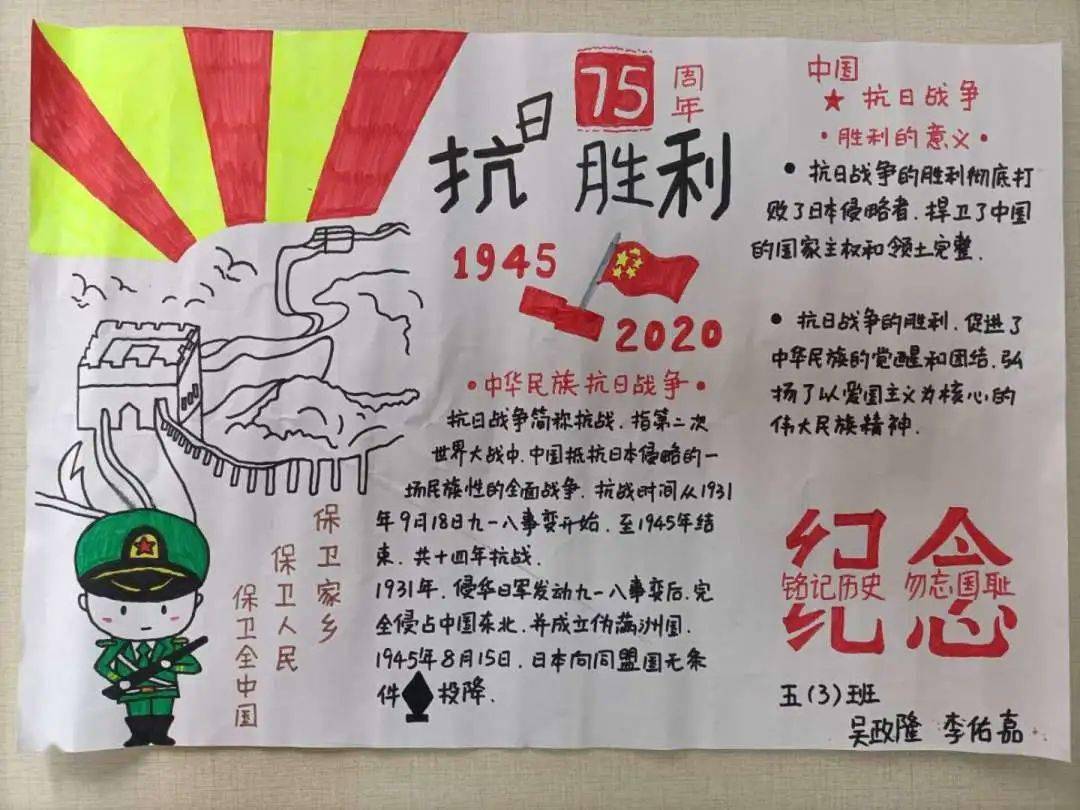 抗日
75
周年
胜利
1945
2020
·中华民族抗日战争·
抗日战争简称抗战,指第二次
世界大战中,中国抵抗日本侵略的一
场民族性的全面战争,抗战时间从1931
年9月18日九一八事变开始,至1945年结
束,共十四年抗战.
1931年,侵华日军发动九一八事变后,完
全侵占中国东北,并成立伪满洲国.
1945年8月15日,日本向同盟国无条
件投降.
中国
★抗日战争
·胜利的意义·
●抗日战争的胜利彻底打
败了日本侵略者,捍卫了中国
的国家主权和领土完整.
●抗日战争的胜利,促进了
中华民族的觉醒和团结,弘
扬了以爱国主义为核心的
伟大民族精神.
保卫家乡
保卫人民
保卫全中国
纪念
铭记历史 勿忘国耻
五(3)班
吴政隆 李佑嘉